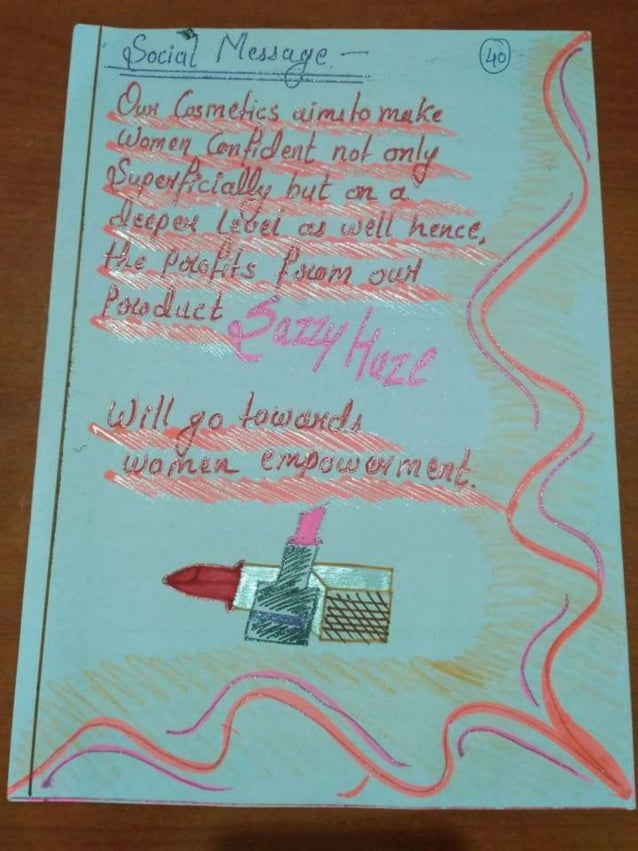 Social Message. —
40
Our Cosmetics aims to make
Women Confident not only
Superficially but on a
deeper level as well hence,
the profits from our
Product Sazzy Haze
Will go towards
women empowerment.